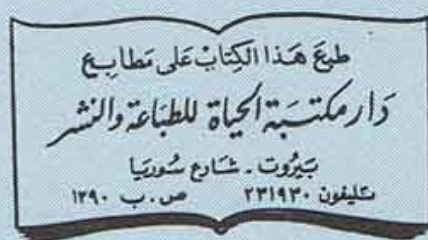 طبعَ هَذا الكِتابْ عَلى مَطابِع
دَار مكتبَة الحيَاة للطبَاعَة والنشر
بَيرُوت - شَارع سُوريَا
تليفون ٢٣١٩٣٠ ص.ب ١٣٩٠